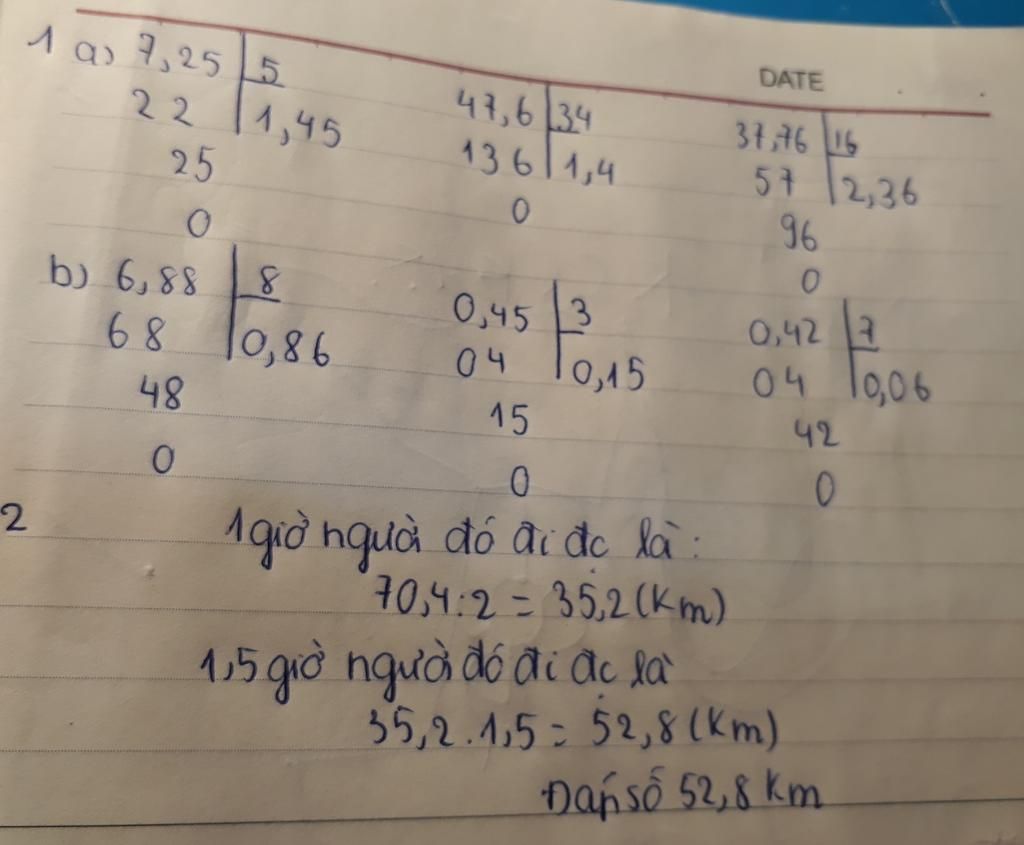 DATE
1 a) 7,25 | 5 47,6 | 34 37,76 | 16
22 | 1,45 136 | 1,4 57 | 2,36
25 0 96
0 0
b) 6,88 | 8 0,45 | 3 0,42 | 7
68 | 0,86 04 | 0,15 04 | 0,06
48 15 42
0 0 0
2 1 giờ người đó đi đc là:
70,4:2 = 35,2 (Km)
1,5 giờ người đó đi đc là
35,2.1,5 = 52,8 (Km)
Đáp số 52,8 Km